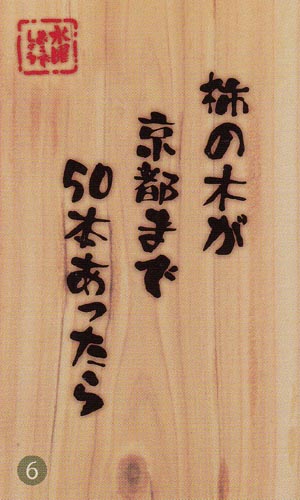 水曜
柿の木が
京都まで
50本あったら
6